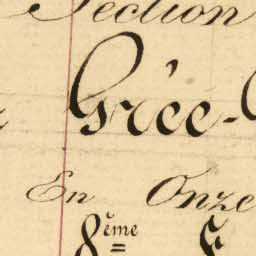 Section
Gréc-
En Onze
8ème